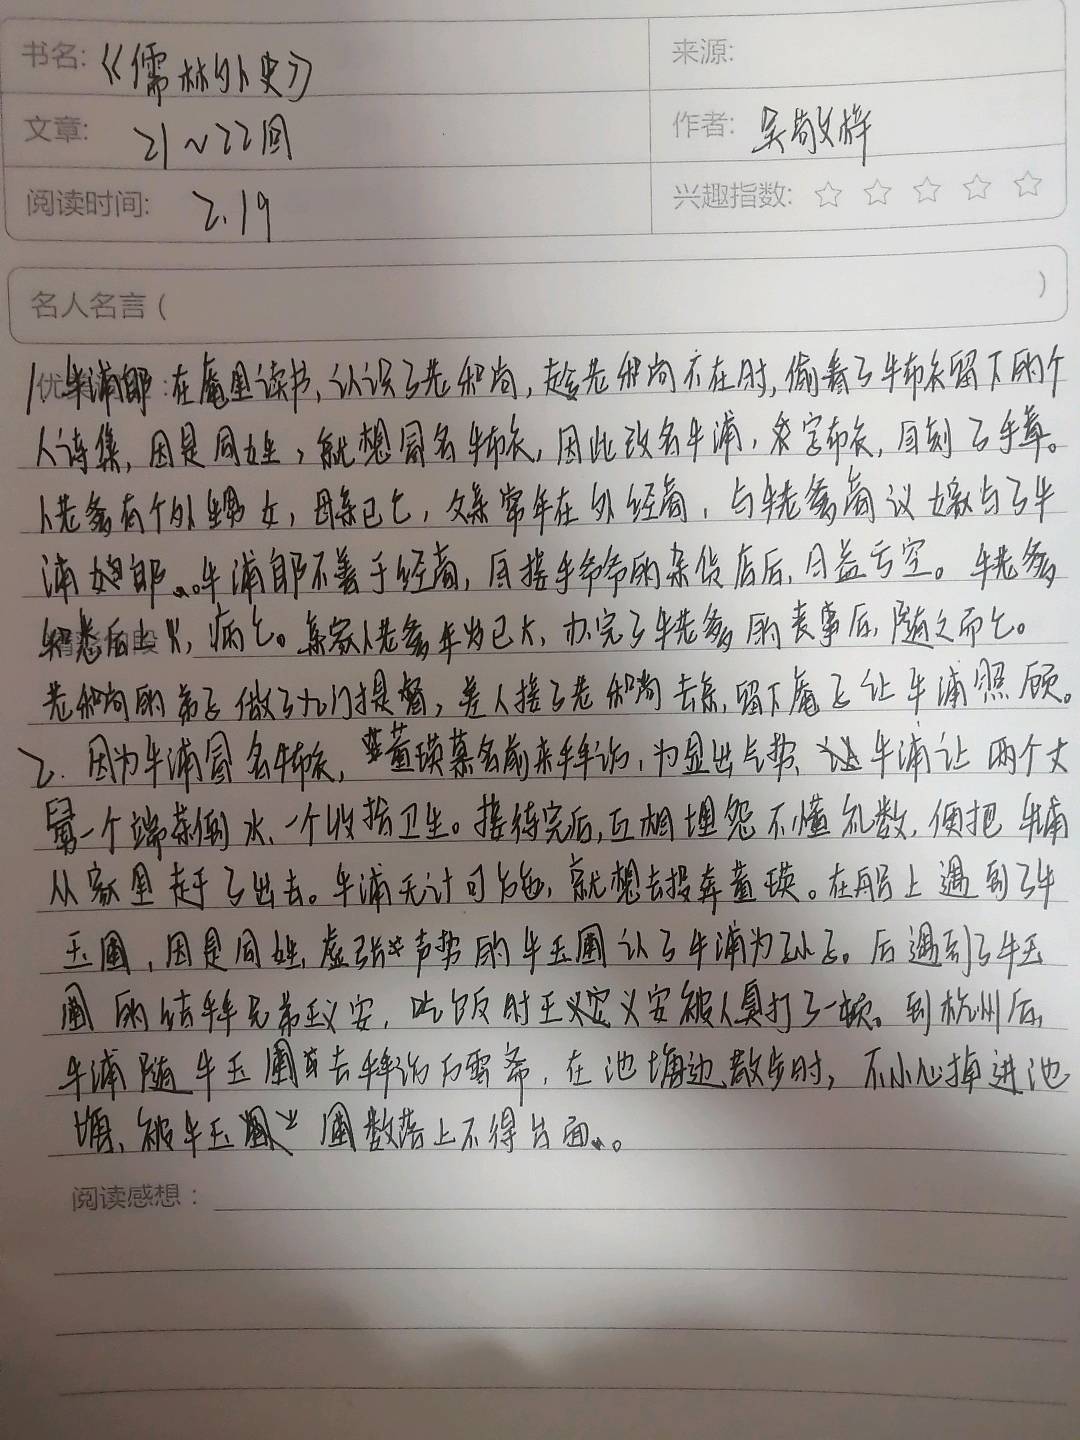 书名:《儒林外史》
来源:
文章: 21~22回
作者: 吴敬梓
阅读时间: 2.19
兴趣指数: ☆ ☆ ☆ ☆ ☆
名人名言 ( )
1. 牛浦郎:在庵里读书,认识了老和尚,趁老和尚不在时,偷看了牛布衣留下的个
人诗集,因是同姓,就想冒名牛布衣,因此改名牛浦,字布衣,自刻了手章。
卜老爹有个外甥女,母亲已亡,父亲常年在外经商,与牛老爹商议嫁与了牛
浦郎。牛浦郎不善于经商,自接手爷爷的杂货店后,日益亏空。牛老爹
悉后上火,病亡。亲家卜老爹年岁已大,办完了牛老爹的丧事后,随之而亡。
老和尚的弟子做了九门提督,差人接了老和尚去京,留下庵子让牛浦照顾。
2. 因为牛浦冒名牛布衣,董瑛慕名前来拜访,为显出气势,牛浦让两个丈
舅一个端茶倒水、一个收拾卫生。接待完后,互相埋怨不懂礼数,便把牛浦
从家里赶了出去。牛浦无计可施,就想去投奔董瑛。在船上遇到了牛
玉圃,因是同姓,虚张声势的牛玉圃认了牛浦为孙子。后遇到了牛玉
圃的结拜兄弟王义安,吃饭时王义安被人臭打了一顿。到杭州后,
牛浦随牛玉圃去拜访万雪斋,在池塘边散步时,不小心掉进池
塘,被牛玉圃数落上不得台面。
阅读感想: